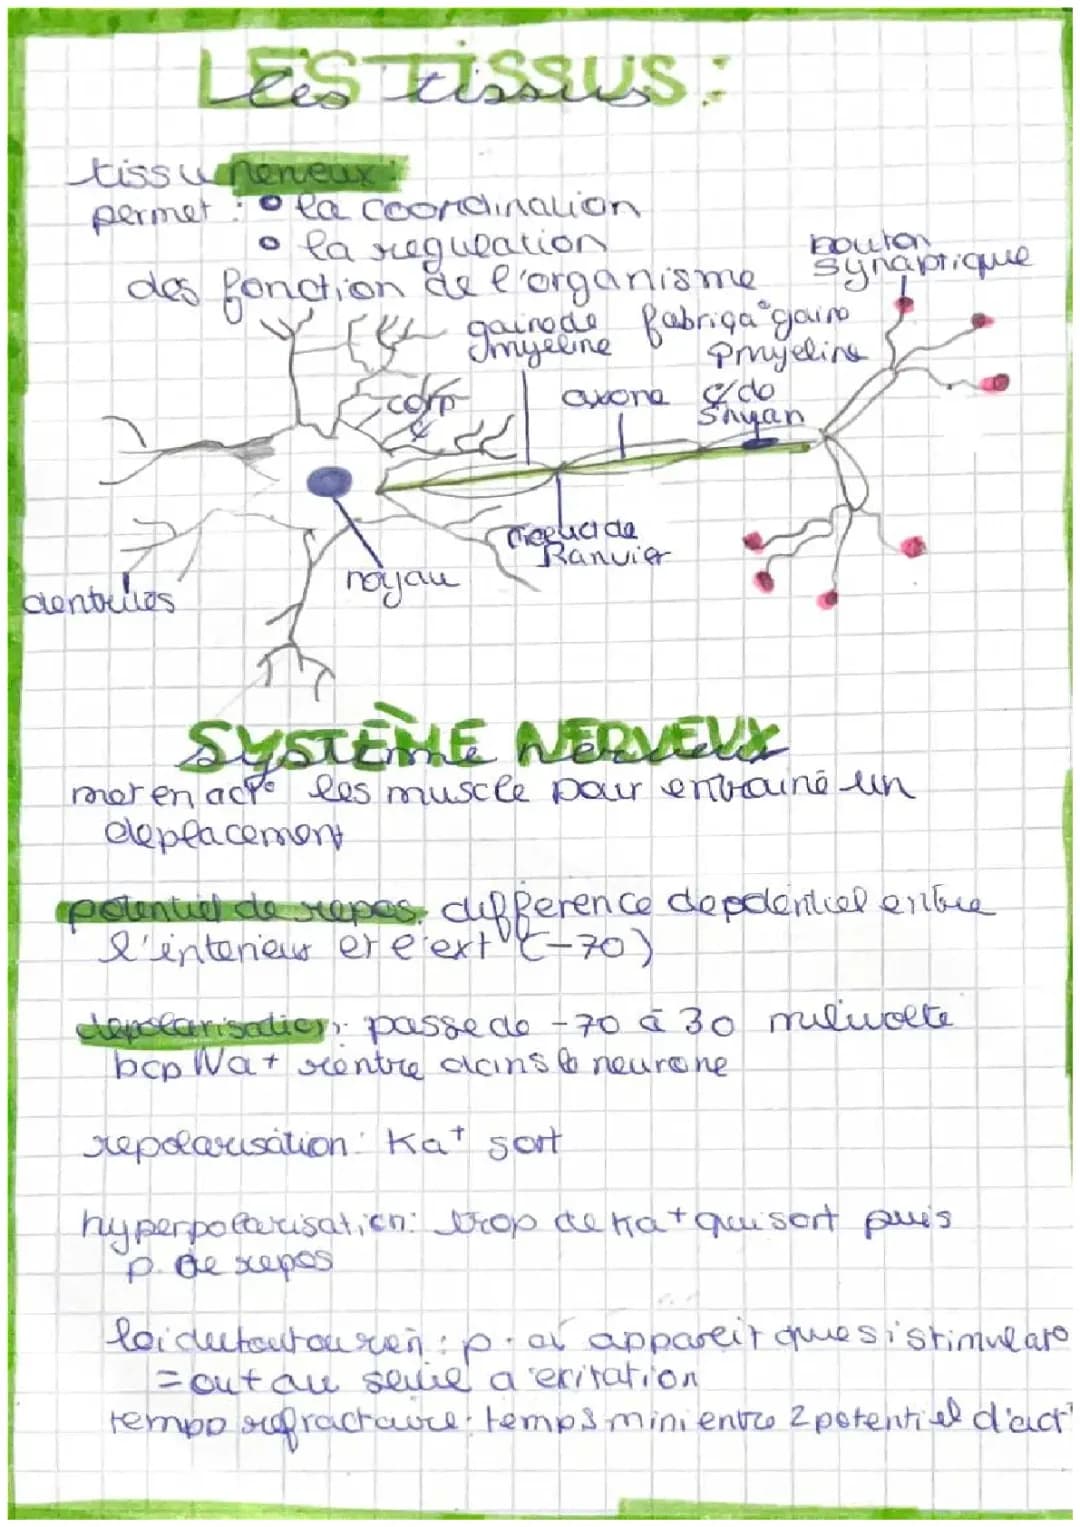 LES TISSUS :
les tissus
tissu nerveux :
permet : • la coordination
• la regulation
des fonction de l'organisme
bouton
synaptique
gaine de
myeline
fabriqa° gaine
myeline
corp
axone
¢ de
Shwan
neoud de
Ranvier
noyau
dentrites
SYSTÈME NERVEUX
système nerveux
met en act° les muscle pour entrainé un
deplacement
potentiel de repos : difference de potentiel entre
l'interieur et l'ext (-70)
depolarisation : passe de -70 à 30 milivolte
bcp Na+ rentre dans le neurone
repolarisation : Ka+ sort
hyperpolarisation : trop de Ka+ qui sort puis
p. de repos
loi du tout ou rien : p. a apparait que si stimulat°
= ou + au seuil d'exitation
temps refractaire : temps mini entre 2 potentiel d'act°